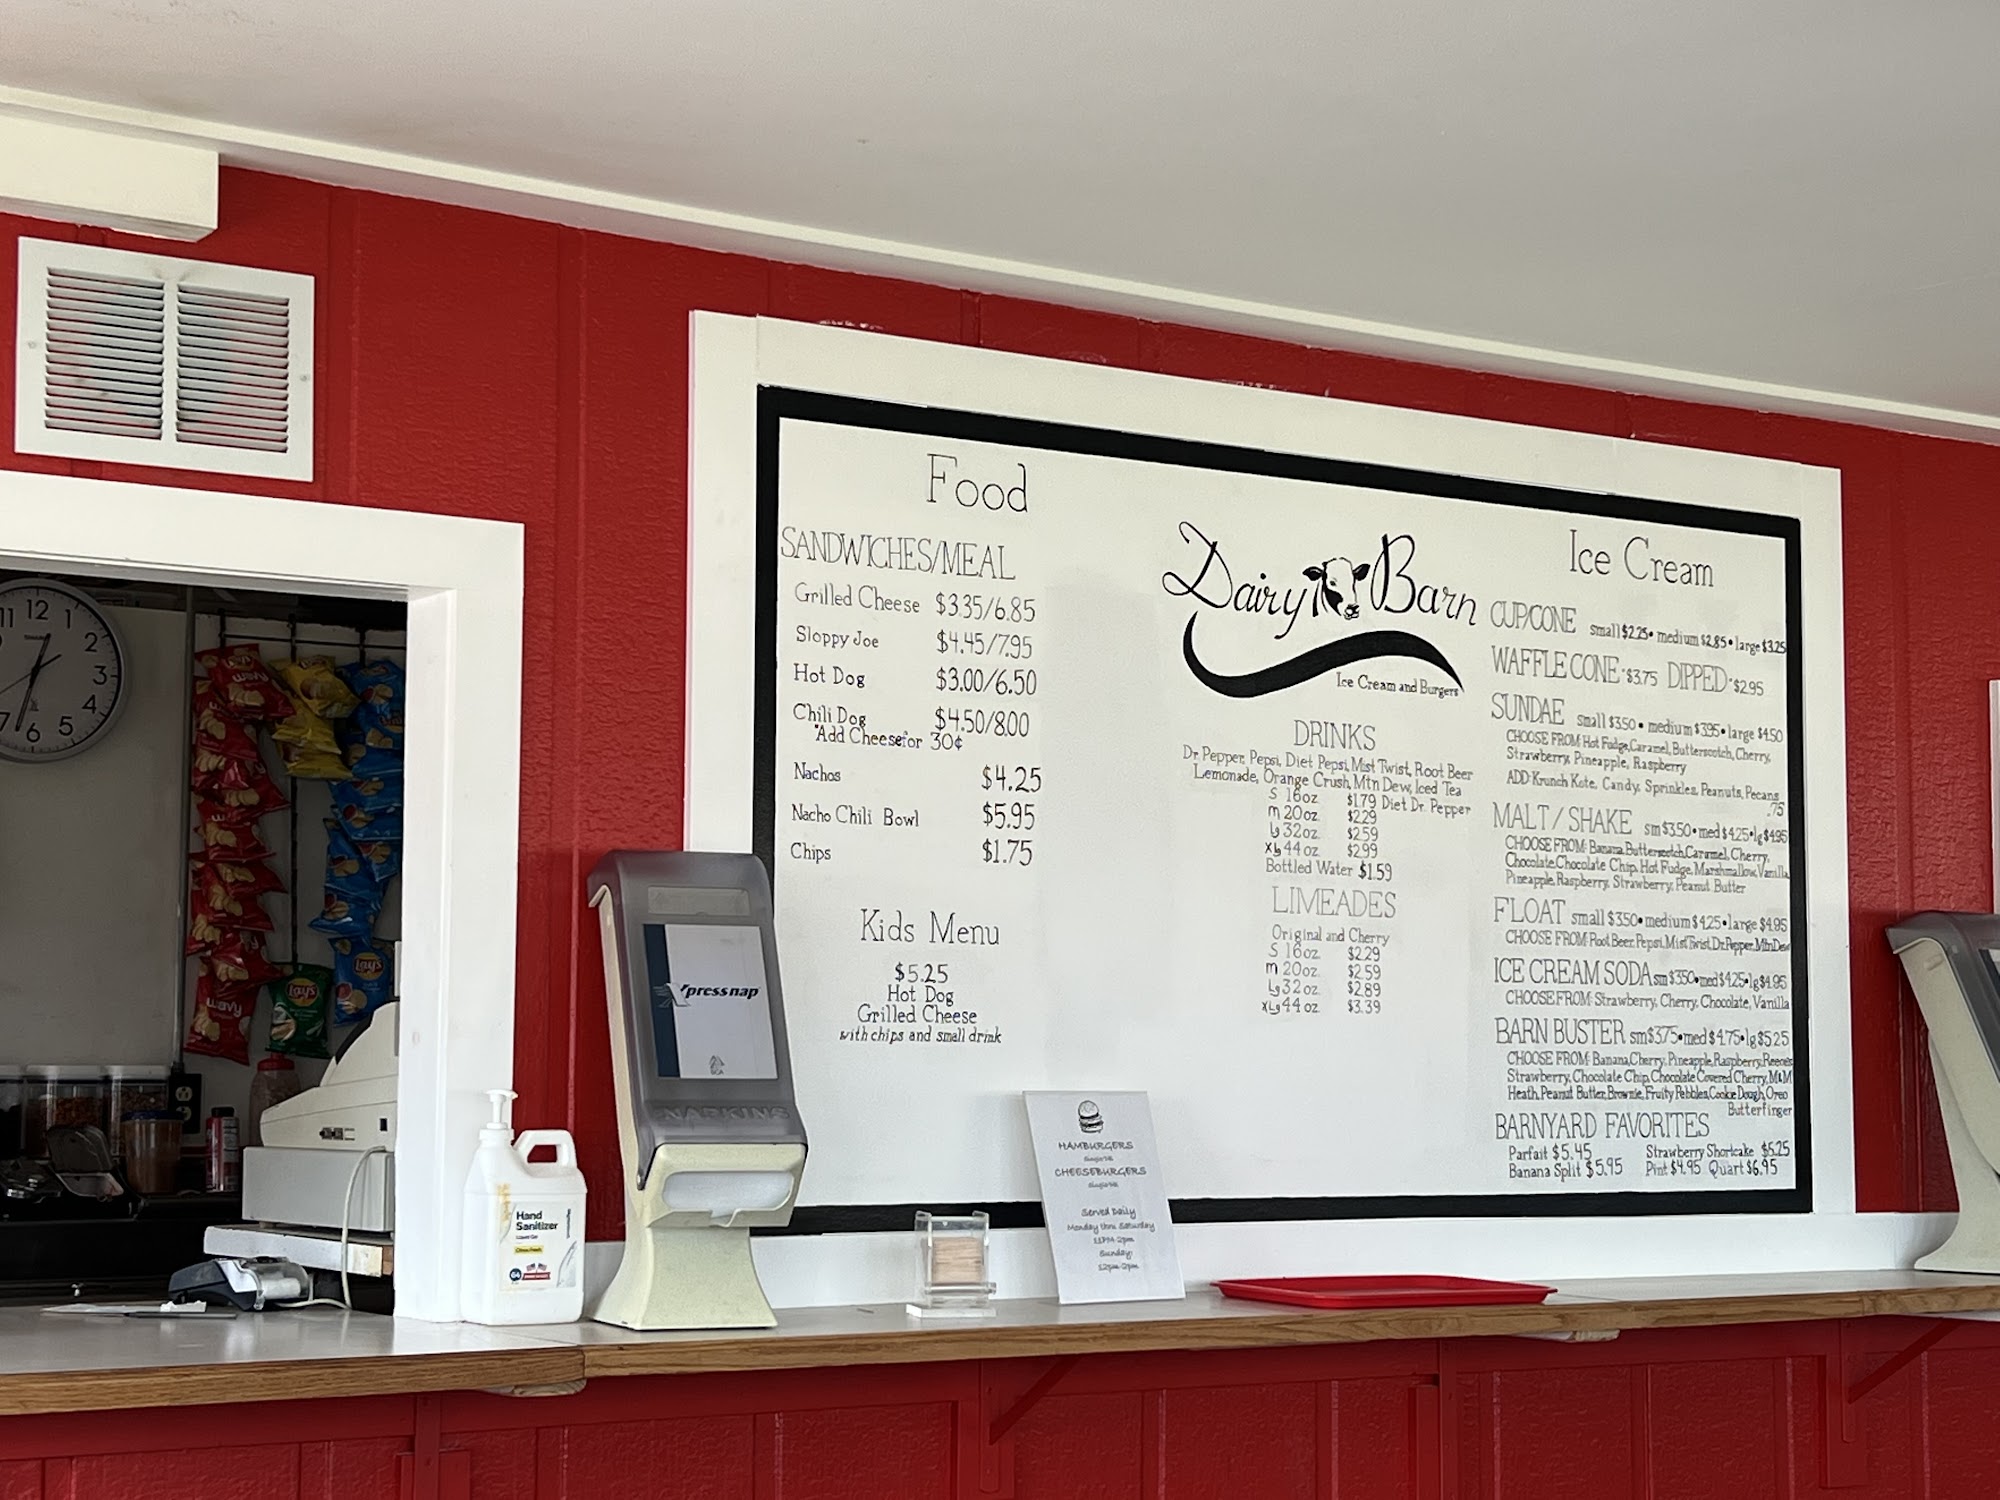 Food
SANDWICHES/MEAL
Grilled Cheese $3.35/6.85
Sloppy Joe $4.45/7.95
Hot Dog $3.00/6.50
Chili Dog $4.50/8.00
*Add Cheese for 30¢
Nachos $4.25
Nacho Chili Bowl $5.95
Chips $1.75
Kids Menu
$5.25
Hot Dog
Grilled Cheese
with chips and small drink
Dairy Barn
Ice Cream and Burgers
DRINKS
Dr. Pepper, Pepsi, Diet Pepsi, Mist Twist, Root Beer
Lemonade, Orange Crush, Mtn Dew, Iced Tea
S 16oz. $1.79 Diet Dr. Pepper
m 20oz. $2.29
Lg 32oz. $2.59
XLg 44oz. $2.99
Bottled Water $1.59
LIMEADES
Original and Cherry
S 16oz. $2.29
m 20oz. $2.59
Lg 32oz. $2.89
XLg 44oz. $3.39
Ice Cream
CUP/CONE small $2.25 • medium $2.85 • large $3.25
WAFFLE CONE • $3.75 DIPPED • $2.95
SUNDAE small $3.50 • medium $3.95 • large $4.50
CHOOSE FROM: Hot Fudge, Caramel, Butterscotch, Cherry,
Strawberry, Pineapple, Raspberry
ADD: Krunch Kote, Candy, Sprinkles, Peanuts, Pecans
.75
MALT/SHAKE sm $3.50 • med $4.25 • lg $4.95
CHOOSE FROM: Banana, Butterscotch, Caramel, Cherry,
Chocolate, Chocolate Chip, Hot Fudge, Marshmallow, Vanilla,
Pineapple, Raspberry, Strawberry, Peanut Butter
FLOAT small $3.50 • medium $4.25 • large $4.95
CHOOSE FROM: Root Beer, Pepsi, Mist Twist, Dr. Pepper, Mtn Dew
ICE CREAM SODA sm $3.50 • med $4.25 • lg $4.95
CHOOSE FROM: Strawberry, Cherry, Chocolate, Vanilla
BARN BUSTER sm $3.75 • med $4.75 • lg $5.25
CHOOSE FROM: Banana, Cherry, Pineapple, Raspberry, Reeces
Strawberry, Chocolate Chip, Chocolate Covered Cherry, M&M
Heath, Peanut Butter, Brownie, Fruity Pebbles, Cookie Dough, Oreo
Butterfinger
BARNYARD FAVORITES
Parfait $5.45 Strawberry Shortcake $5.25
Banana Split $5.95 Pint $4.95 Quart $6.95
HAMBURGERS
CHEESEBURGERS
Served Daily
Monday thru Saturday
11PM-2pm
Sunday:
12pm-2pm
Xpressnap
NAPKINS
Hand
Sanitizer
Lay's
Lay's
wavy
wavy
11 12 1 2 3 4 5 6 7
SHARP